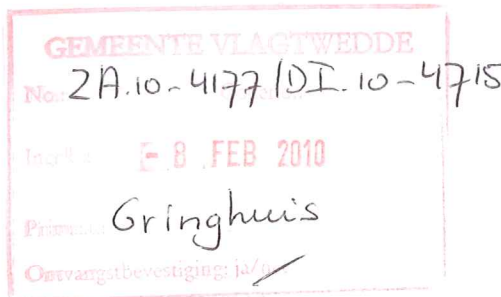 GEMEENTE VLAGTWEDDE
No: ZA.10-4177/DI.10-4715
- 8 FEB 2010
Gringhuis
Ontvangstbevestiging: ja/